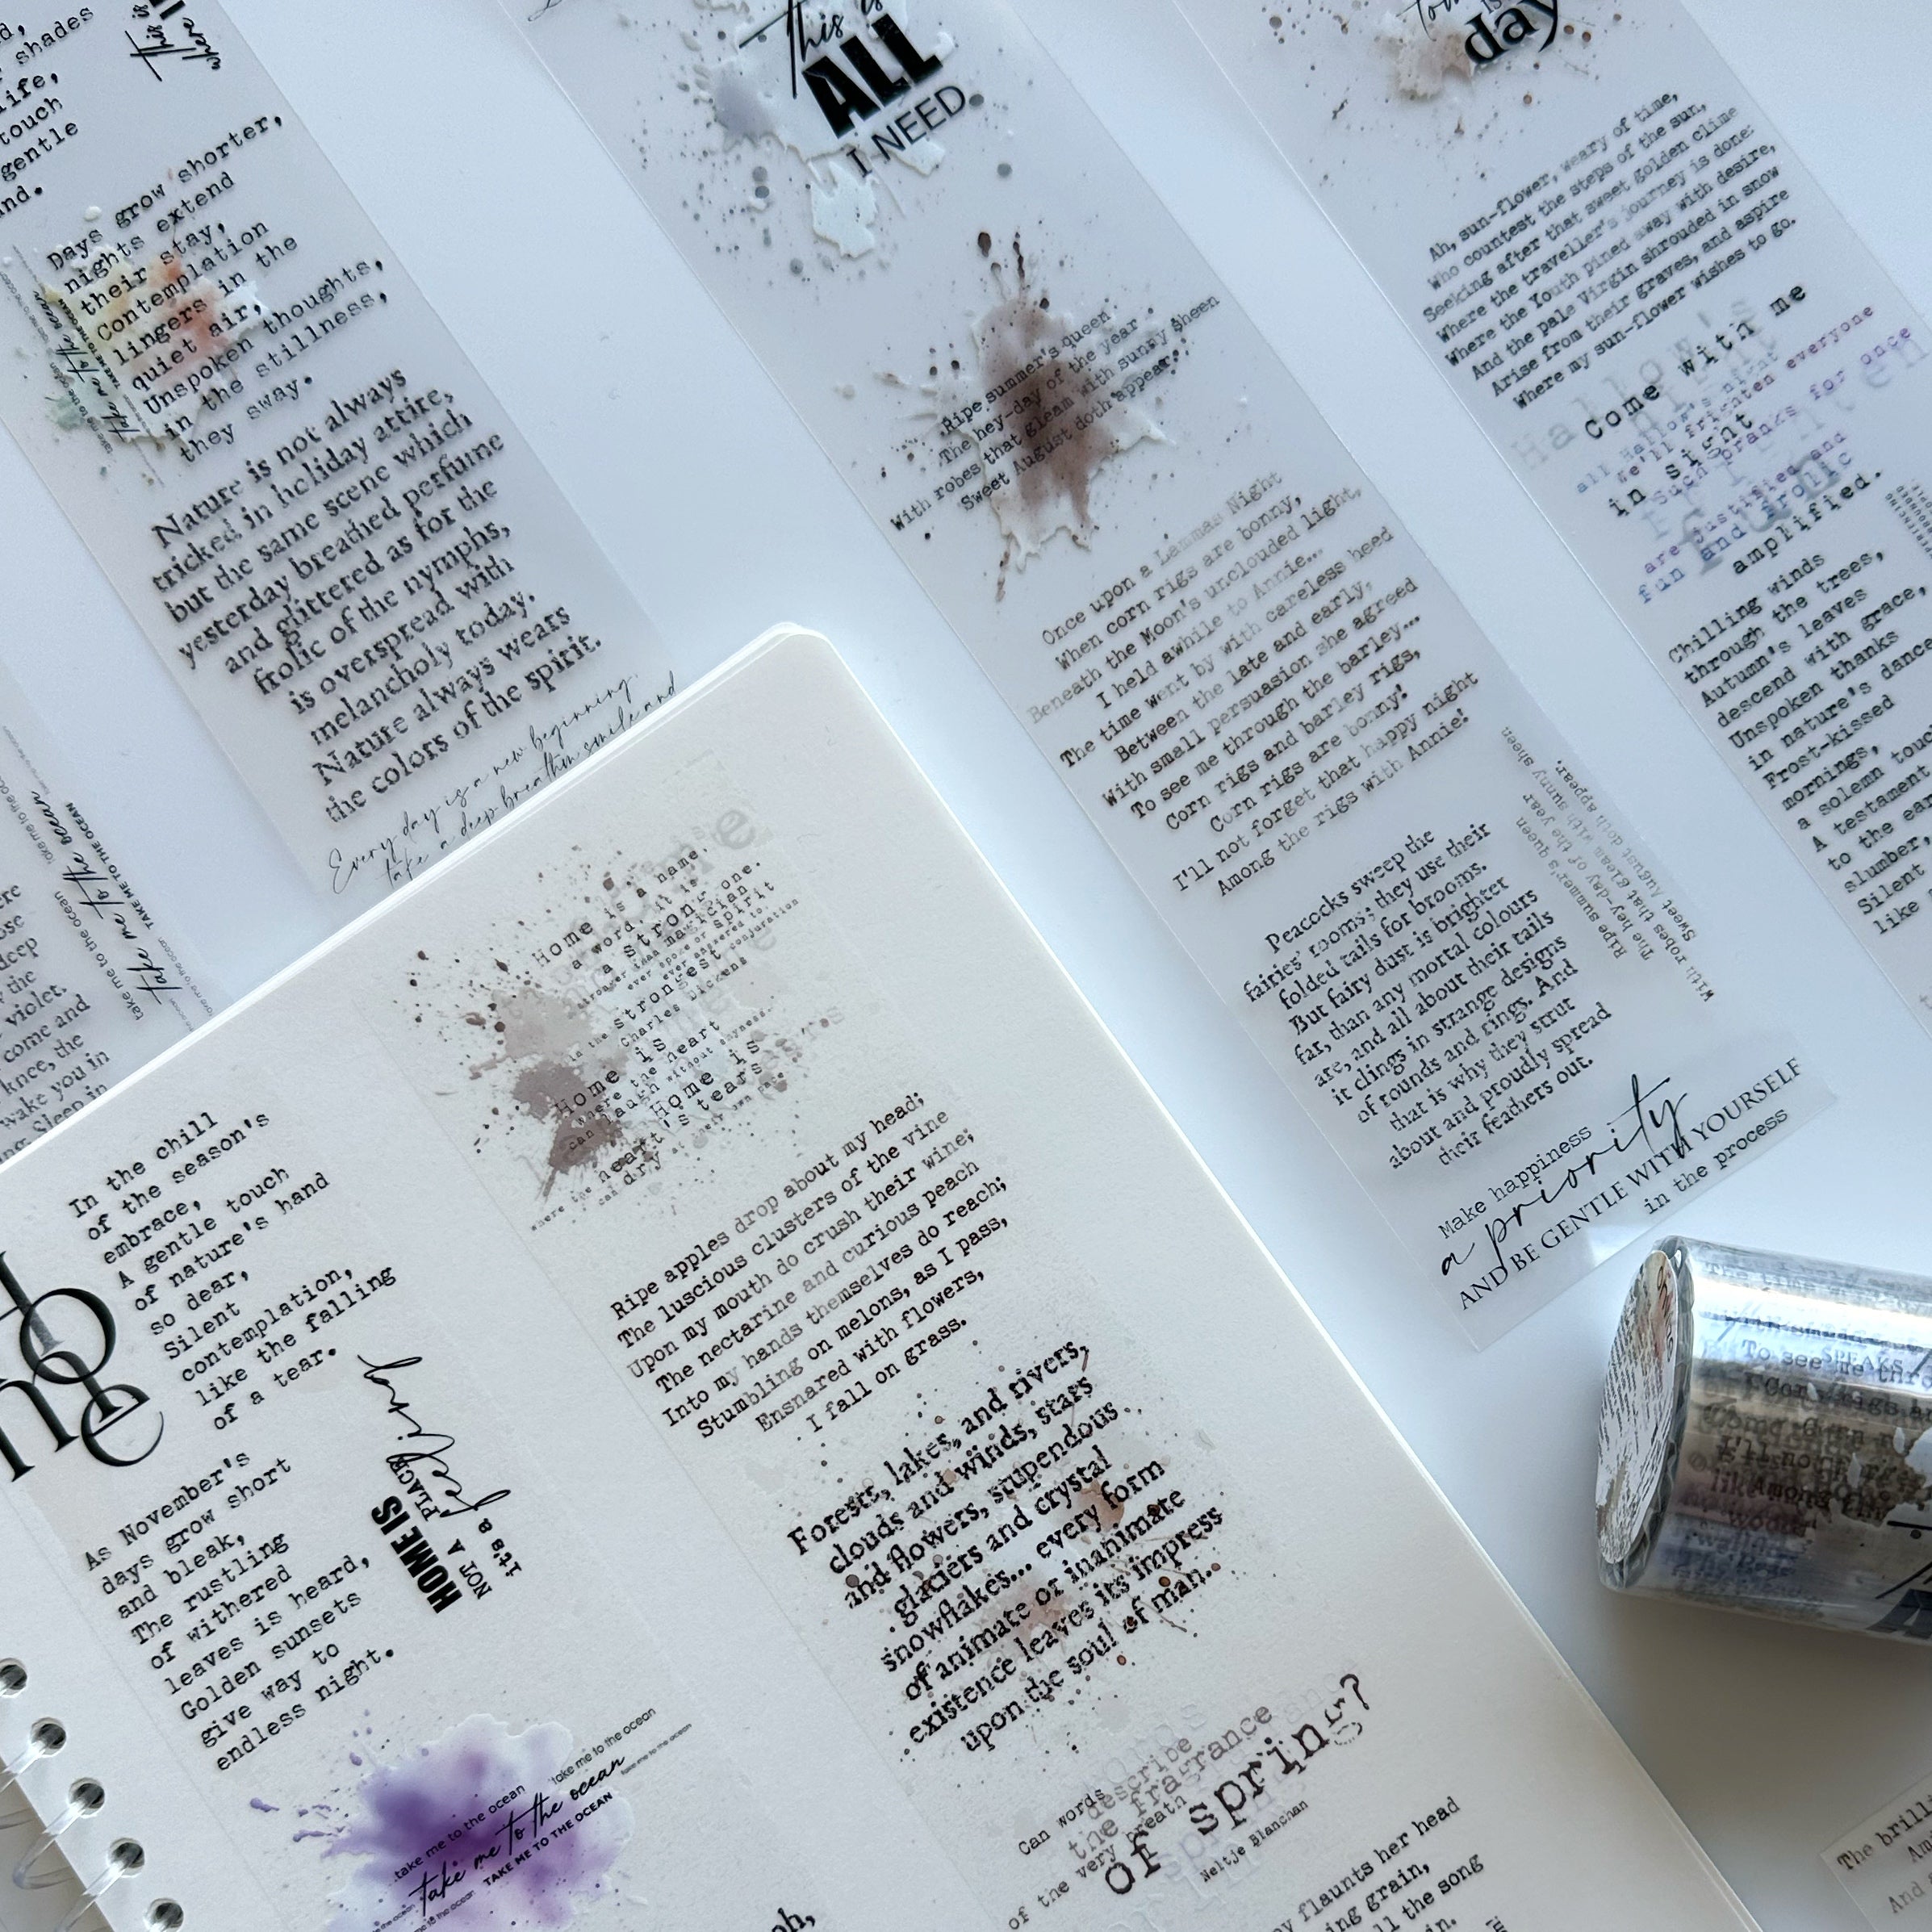 shades
life,
touch
gentle
this is
where
Days grow shorter,
nights extend
their stay,
Contemplation
lingers in the
quiet air,
Unspoken thoughts,
in the stillness,
they sway.
take me to the ocean
TAKE ME TO THE OCEAN
Nature is not always
tricked in holiday attire,
but the same scene which
yesterday breathed perfume
and glittered as for the
frolic of the nymphs,
is overspread with
melancholy today.
Nature always wears
the colors of the spirit.
Every day is a new beginning.
take a deep breath smile and
take me to the ocean
take me to the ocean
TAKE ME TO THE OCEAN
deep
the
violet.
come and
knee, the
wake you in
Sleep in
this is
ALL
I NEED
Ripe summer's queen
The hey-day of the year
With robes that gleam with sunny sheen
Sweet August doth appear.
Once upon a Lammas Night
When corn rigs are bonny,
Beneath the Moon's unclouded light,
I held awhile to Annie...
The time went by with careless heed
Between the late and early,
With small persuasion she agreed
To see me through the barley...
Corn rigs and barley rigs,
Corn rigs are bonny!
I'll not forget that happy night
Among the rigs with Annie!
Ripe summer's queen
The hey-day of the year
With robes that gleam with sunny sheen
Sweet August doth appear.
Peacocks sweep the
fairies' rooms; they use their
folded tails for brooms.
But fairy dust is brighter
far, than any mortal colours
are, and all about their tails
it clings in strange designs
of rounds and rings. And
that is why they strut
about and proudly spread
their feathers out.
Make happiness
a priority
AND BE GENTLE WITH YOURSELF
in the process
day
Ah, sun-flower, weary of time,
Who countest the steps of the sun,
Seeking after that sweet golden clime
Where the traveller's journey is done:
Where the Youth pined away with desire,
And the pale Virgin shrouded in snow
Arise from their graves, and aspire
Where my sun-flower wishes to go.
Come with me
all Hallow's night
We'll frighten everyone
in sight
Such pranks for once
are justified and
fun and frolic
amplified.
Chilling winds
through the trees,
Autumn's leaves
descend with grace,
Unspoken thanks
in nature's dance
Frost-kissed
mornings,
a solemn touch
A testament
to the
slumber,
Silent
like
In the chill
of the season's
embrace,
A gentle touch
of nature's hand
so dear,
Silent
contemplation,
like the falling
of a tear.
HOME IS
NOT A
PLACE
it's a
feeling
As November's
days grow short
and bleak,
The rustling
of withered
leaves is heard,
Golden sunsets
give way to
endless night.
take me to the ocean
take me to the ocean
take me to the ocean
TAKE ME TO THE OCEAN
Home is a name,
a word, it is
a strong one.
stronger than magician
ever spoke or spirit
ever answered to,
in the strongest conjuration
Charles Dickens
Home is
where the heart
can laugh without shyness.
Home is
where the heart's tears
can dry at their own pace
Ripe apples drop about my head;
The luscious clusters of the vine
Upon my mouth do crush their wine;
The nectarine and curious peach
Into my hands themselves do reach;
Stumbling on melons, as I pass,
Ensnared with flowers,
I fall on grass.
Forests, lakes, and rivers,
clouds and winds, stars
and flowers, stupendous
glaciers and crystal
snowflakes... every form
of animate or inanimate
existence leaves its impress
upon the soul of man.
Can words
describe
the fragrance
of the very breath
of spring?
Neltje Blanchan
flaunts her head
grain,
the song
SPEAKS
To see me
Corn rigs
I'll not
Among the
The
And